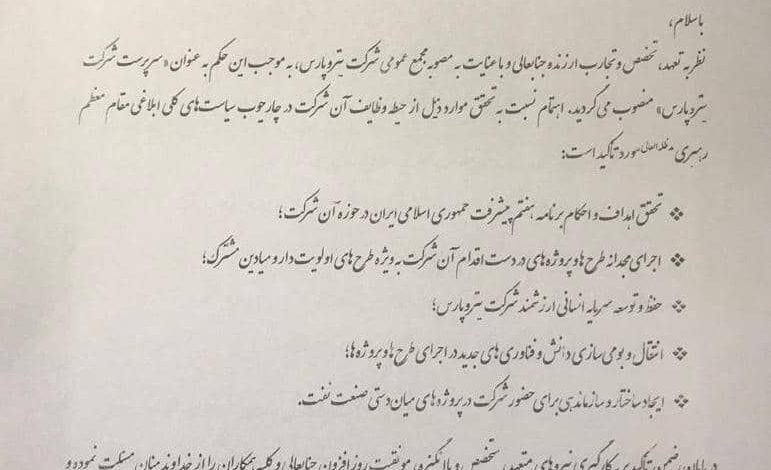 باسلام،
نظر به تعهد، تخصص و تجارب ارزنده جنابعالی و با عنایت به مصوبه مجمع عمومی شرکت پتروپارس، به موجب این حکم به عنوان «سرپرست شرکت
پتروپارس» منصوب می گردید. اهتمام نسبت به تحقق موارد ذیل از حیطه وظایف آن شرکت در چارچوب سیاست های کلی ابلاغی مقام معظم
رهبری مدظله العالی مورد تاکید است:
❖ تحقق اهداف و احکام برنامه هفتم پیشرفت جمهوری اسلامی ایران در حوزه آن شرکت؛
❖ اجرای مجدانه طرح ها و پروژه های در دست اقدام آن شرکت به ویژه طرح های اولویت دار و میادین مشترک؛
❖ حفظ و توسعه سرمایه انسانی ارزشمند شرکت پتروپارس؛
❖ انتقال و بومی سازی دانش و فناوری های جدید در اجرای طرح ها و پروژه ها؛
❖ ایجاد ساختار و سازماندهی برای حضور شرکت در پروژه های میان دستی صنعت نفت.
در پایان، ضمن تأکید بر بکارگیری نیروهای متعهد، متخصص و با انگیزه، موفقیت روزافزون جنابعالی و کلیه همکاران را از خداوند منان مسئلت نموده و